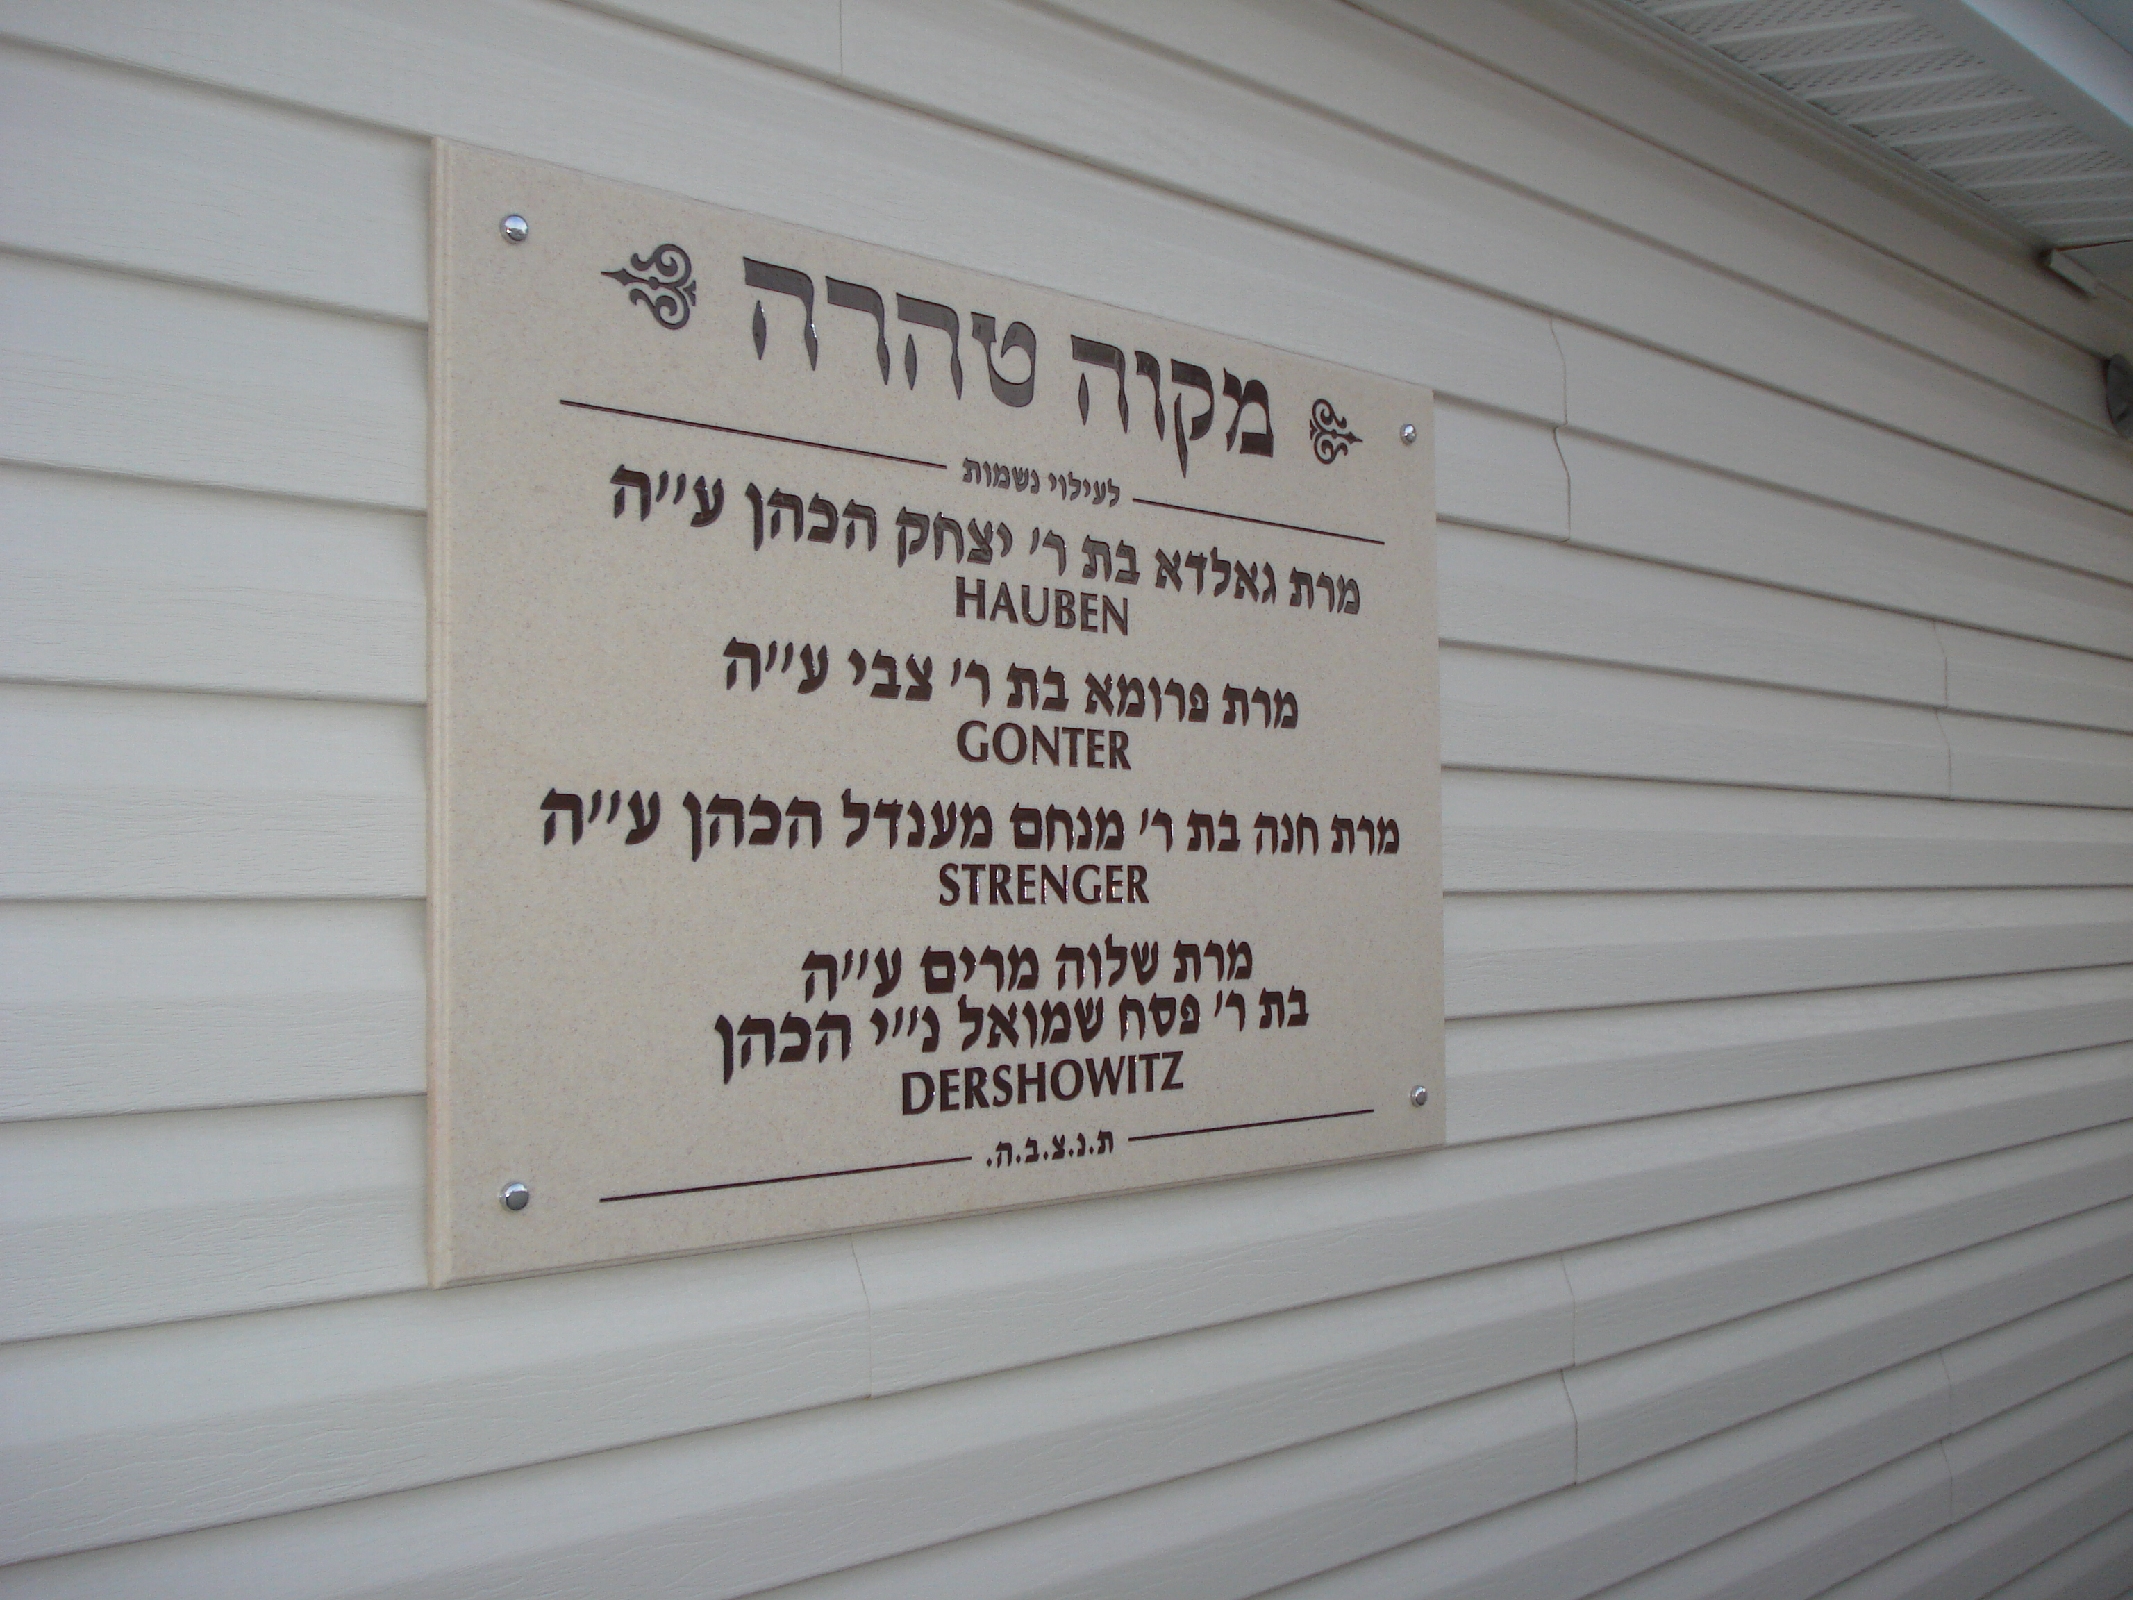 מקוה טהרה
לעילוי נשמות
מרת גאלדא בת ר׳ יצחק הכהן ע״ה
HAUBEN
מרת פרומא בת ר׳ צבי ע״ה
GONTER
מרת חנה בת ר׳ מנחם מענדל הכהן ע״ה
STRENGER
מרת שלוה מרים ע״ה
בת ר׳ פסח שמואל נ״י הכהן
DERSHOWITZ
ת.נ.צ.ב.ה.